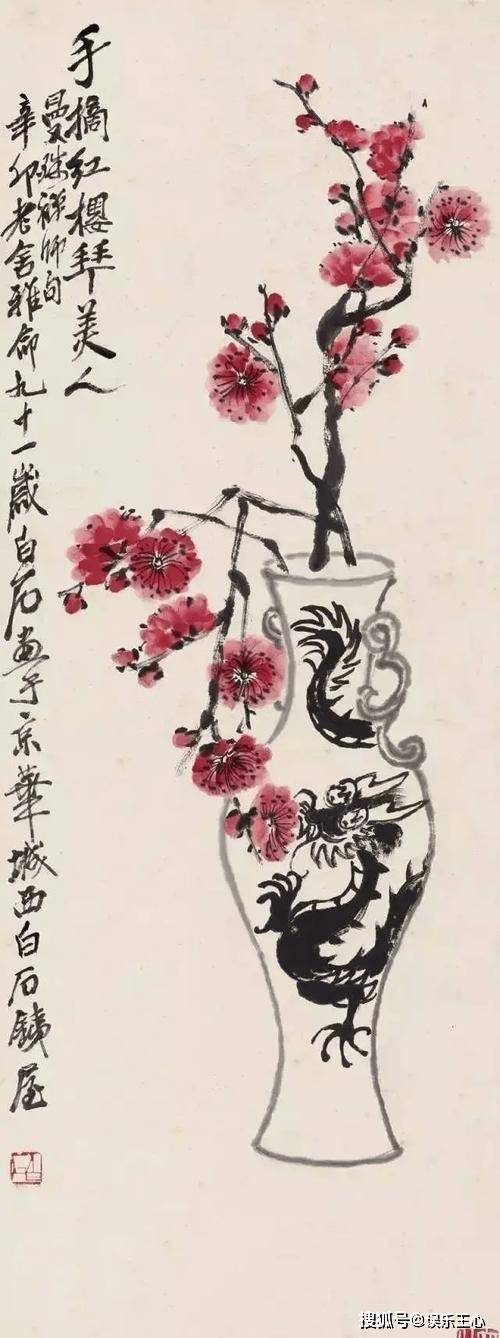 手摘红樱拜美人
曼殊禅师句
辛卯老舍雅命九十一岁白石画于京华城西白石铁屋
搜狐号@娱乐王心